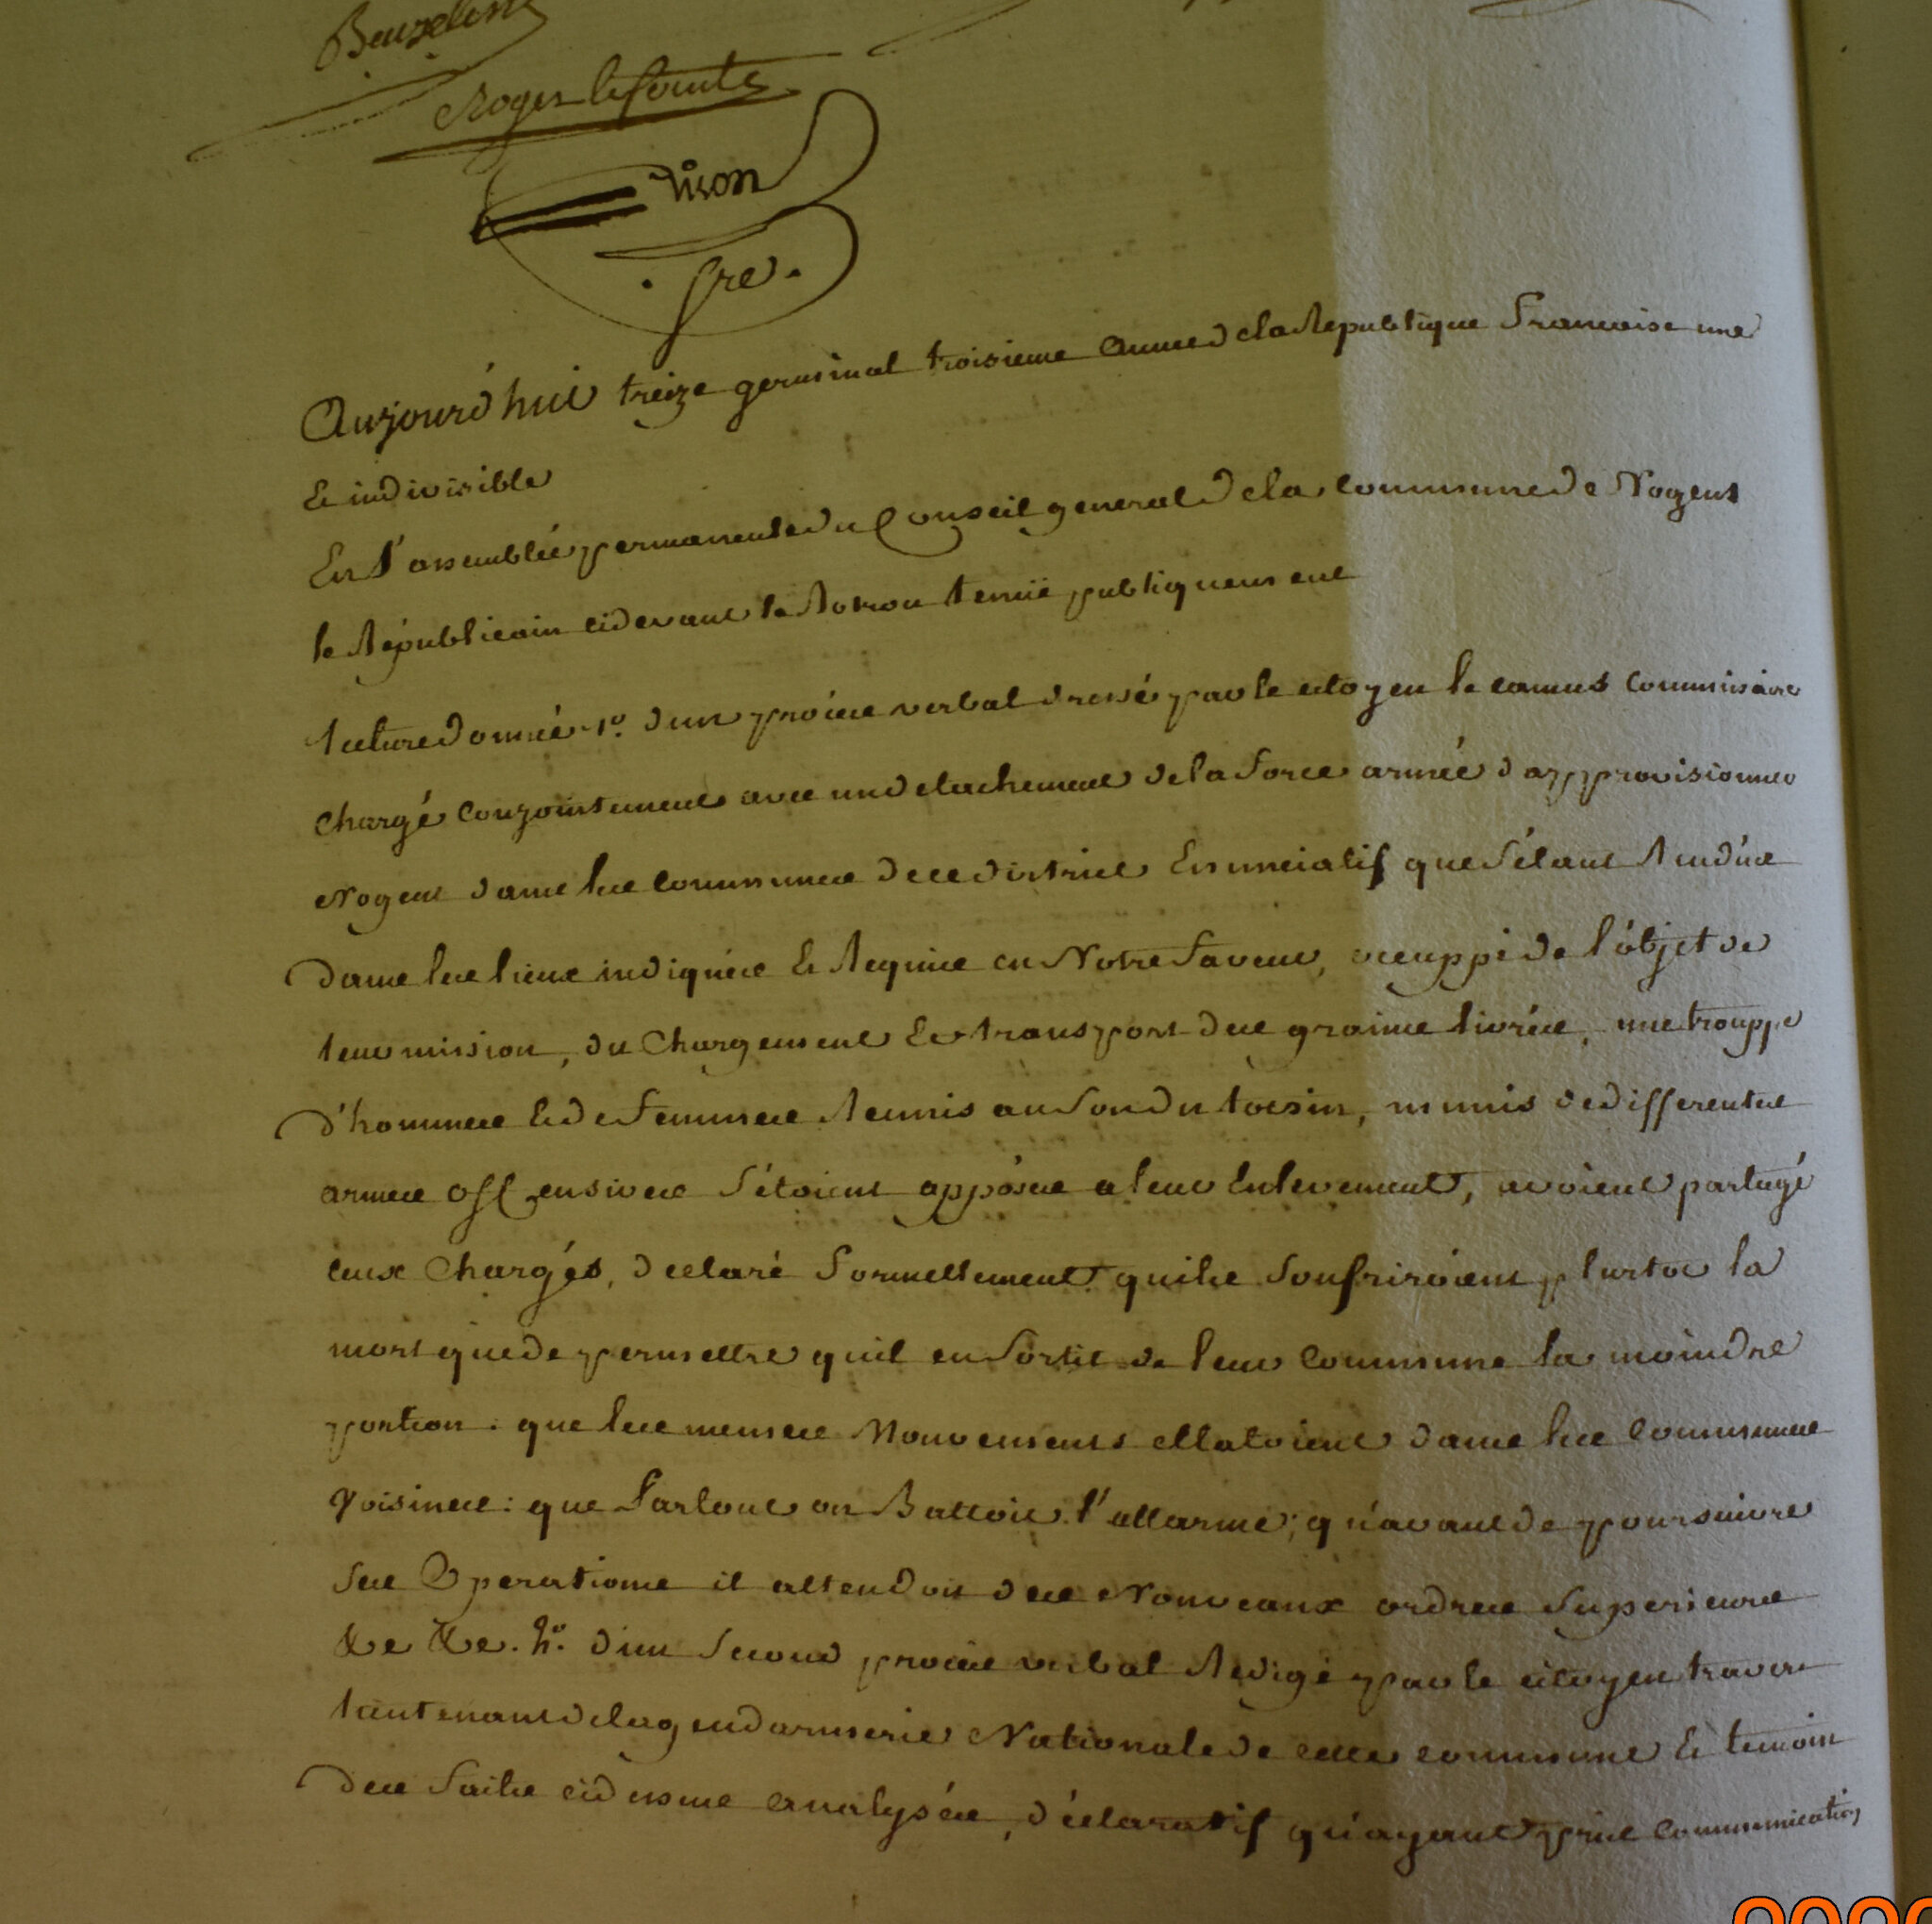 Beuzelin
Roger lecomte
Vison
Gre.
Aujourd'hui treize germinal troisieme année de la Republique francaise une
et indivisible
En l'assemblée permanente du Conseil general de la commune de Nogent
le Républicain cidevant le Rotrou tenüe publiquement
lecture donnée 1º. d'un procès verbal dressé par le citoyen le camus commissaire
chargé conjointement avec un detachement de la force armée d'approvisionner
Nogent dans les communes de ce district Enunciatif que s'étant rendus
dans les lieux indiqués et requis en Notre faveur, occuppé de l'objet de
leur mission, du Chargement et transport des grains livrés, une trouppe
d'hommes et de femmes reunis au son du tocsin, munis de differentes
armes offensives s'étoient opposés a leur Enlevement, avoient partagé
ceux Chargés, declaré formellement quils soufriroient plustot la
mort que de permettre quil en sortit de leur commune la moindre
portion : que les memes Mouvements ellatoient dans les communes
Voisines : que Partout on Battoit l'allarme; qu'avant de poursuivre
ses Operations il attendoit des Nouveaux ordres superieurs
&c &c. 2º. d'un second procès verbal redigé par le citoyen travers
lieutenant de la gendarmerie Nationale de cette commune et temoin
des faits cidessus analysés, déclaratif qu'ayant pris communication